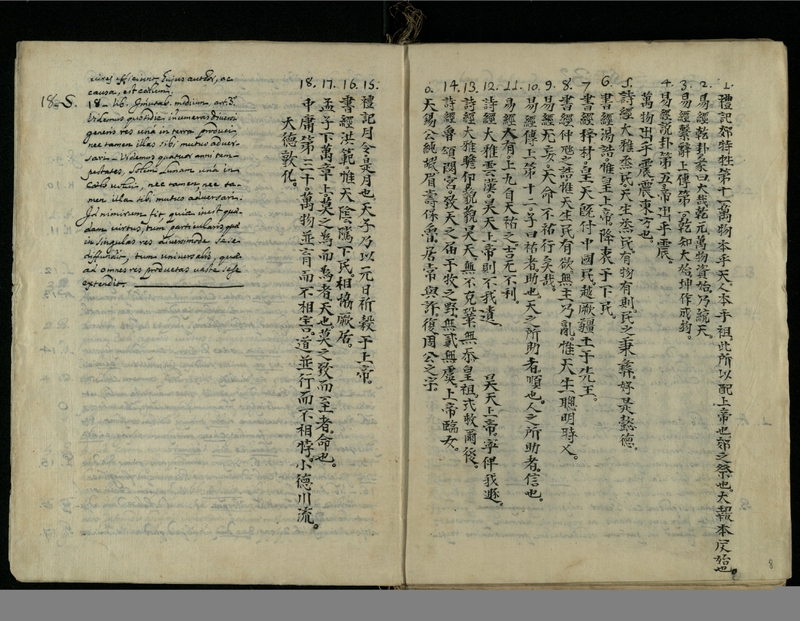 1. 禮記郊特牲第十一萬物本乎天人本乎祖此所以配上帝也郊之祭也大報本反始也
2. 易經乾卦彖曰大哉乾元萬物資始乃統天
3. 易經繫辭上傳第一乾知大始坤作成物
4. 易經說卦第五帝出乎震
萬物出乎震震東方也
5. 詩經大雅烝民天生烝民有物有則民之秉彝好是懿德
6. 書經湯誥惟皇上帝降衷于下民
7. 書經梓材皇天既付中國民越厥疆土于先王
8. 書經仲虺之誥惟天生民有欲無主乃亂惟天生聰明時乂
9. 易經无妄天命不祐行矣哉
10. 易經傳上第十二子曰祐者助也天之所助者順也人之所助者信也
11. 易經大有上九自天祐之吉无不利
12. 詩經大雅雲漢昊天上帝則不我遺 昊天上帝寧俾我遯
13. 詩經大雅瞻仰藐藐昊天無不克鞏無忝皇祖式救爾後
14. 詩經魯頌閟宮致天之屆于牧之野無貳無虞上帝臨女
0. 天錫公純嘏眉壽保魯居常與許復周公之宇
15. 禮記月令是月也天子乃以元日祈穀于上帝
16. 書經洪範惟天陰騭下民相協厥居
17. 孟子下萬章上莫之為而為者天也莫之致而至者命也
18. 中庸第三十萬物並育而不相害道並行而不相悖小德川流
大德敦化
causa, est cœlum.
18 S. 18 - lib.
Videmus quotidie innumeras diversi
generis res una in terra produci,
nec tamen illas sibi mutuo adver-
sari. Videmus quatuor anni tem-
pestates, solem Lunam una in
nec tamen
men illas sibi mutuo adversari.
dam virtus, tum particularis, quâ
in singulas res diversimode sese
diffundit, tum universalis, quâ
ad omnes res productas vaste sese
extendit.
8